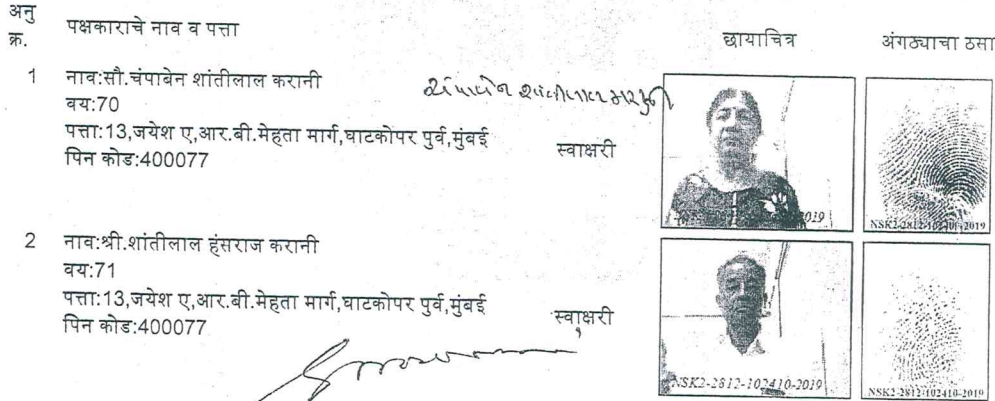 अनु क्र. पक्षकाराचे नाव व पत्ता छायाचित्र अंगठ्याचा ठसा
1 नाव:सौ.चंपाबेन शांतीलाल करानी
वय:70
पत्ता:13,जयेश ए,आर.बी.मेहता मार्ग,घाटकोपर पुर्व,मुंबई
पिन कोड:400077
स्वाक्षरी
2019
NSK2-2812-102410-2019
2 नाव:श्री.शांतीलाल हंसराज करानी
वय:71
पत्ता:13,जयेश ए,आर.बी.मेहता मार्ग,घाटकोपर पुर्व,मुंबई
पिन कोड:400077
स्वाक्षरी
NSK2-2812-102410-2019
NSK2-2812-102410-2019